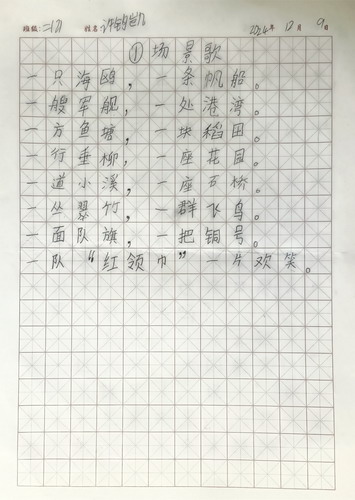 班级: 二(1) 姓名: 2024年 12月 9日
①场景歌
一只海鸥,一条帆船。
一艘军舰,一处港湾。
一方鱼塘,一块稻田。
一行垂柳,一座花园。
一道小溪,一座石桥。
一丛翠竹,一群飞鸟。
一面队旗,一把铜号。
一队“红领巾”一片欢笑。